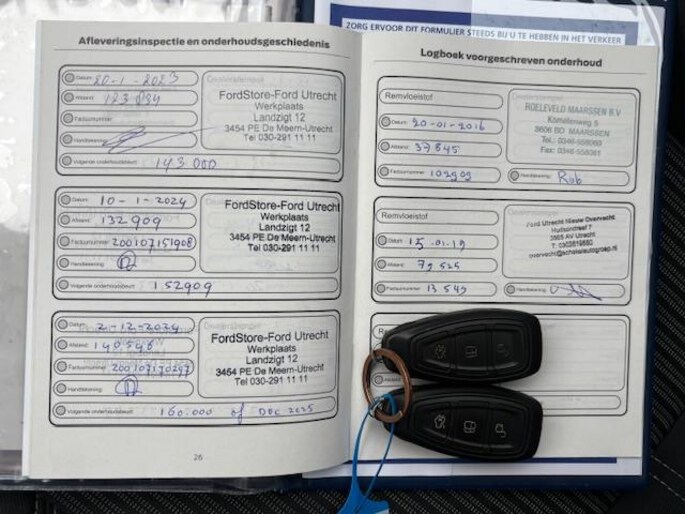 ZORG ERVOOR DIT FORMULIER STEEDS BIJ U TE HEBBEN IN HET VERKEER
Afleveringsinspectie en onderhoudsgeschiedenis
Datum: 20-1-2023
Afstand:
Factuurnummer:
Handtekening:
Volgende onderhoudsbeurt: 143 000
FordStore-Ford Utrecht
Werkplaats
Landzigt 12
3454 PE De Meern-Utrecht
Tel 030-291 11 11
Datum: 10-1-2024
Afstand: 132909
Factuurnummer: 200107151908
Handtekening:
Volgende onderhoudsbeurt: 152909
FordStore-Ford Utrecht
Werkplaats
Landzigt 12
3454 PE De Meern-Utrecht
Tel 030-291 11 11
Datum: 2-12-2024
Afstand: 140596
Factuurnummer:
Handtekening:
Volgende onderhoudsbeurt: 160.000 of DEC 2025
FordStore-Ford Utrecht
Werkplaats
Landzigt 12
3454 PE De Meern-Utrecht
Tel 030-291 11 11
26
Logboek voorgeschreven onderhoud
Remvloeistof
Datum: 20-01-2016
Afstand: 37845
Factuurnummer: 102909
Handtekening: Rob
ROELEVELD MAARSSEN B.V
3606 BD MAARSSEN
Remvloeistof
Datum: 15-01-19
Afstand: 79525
Factuurnummer: 13549
Handtekening:
Ford Utrecht Nieuw Overvecht
Afstand: